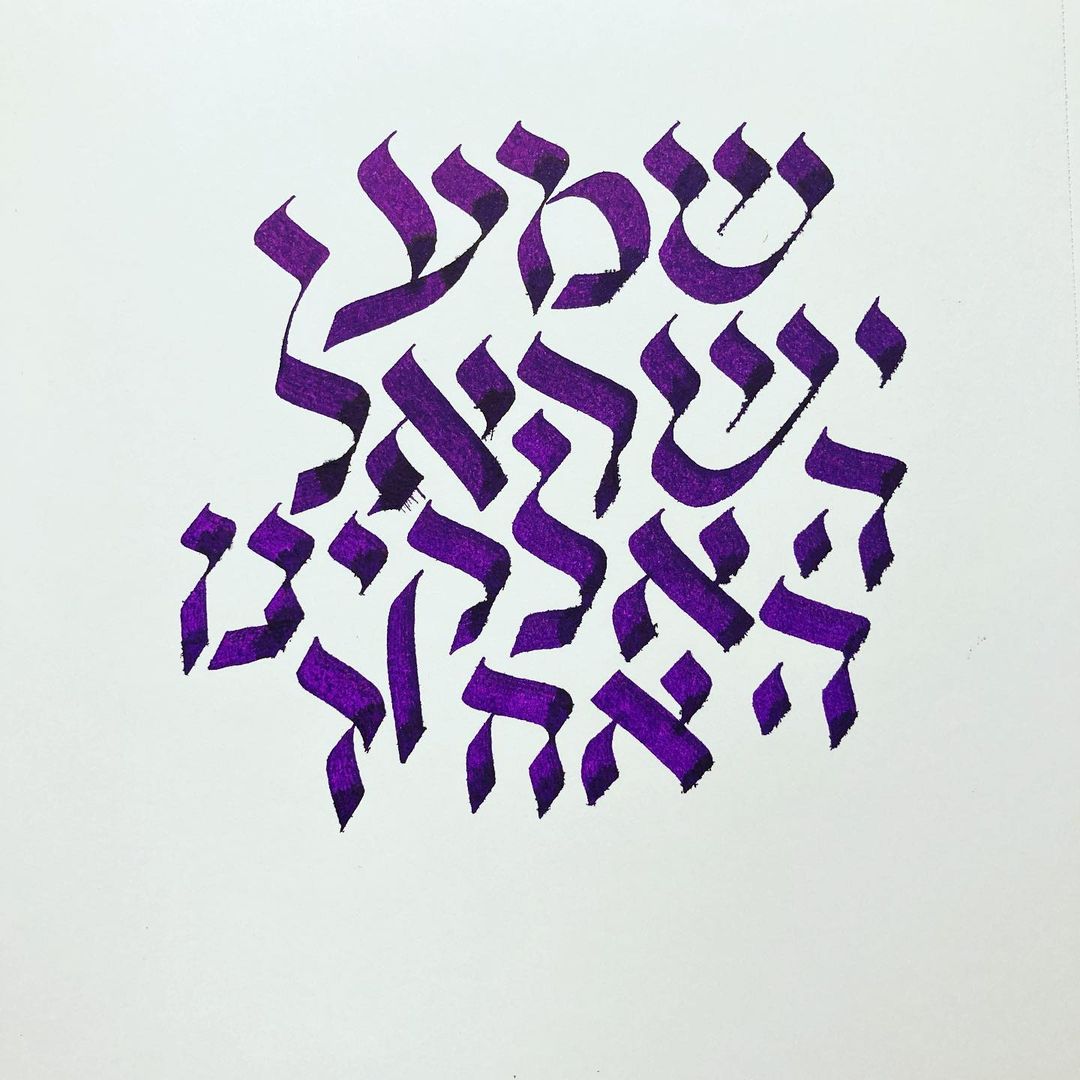 שמע
ישראל
ה אלקינו
ה אחד